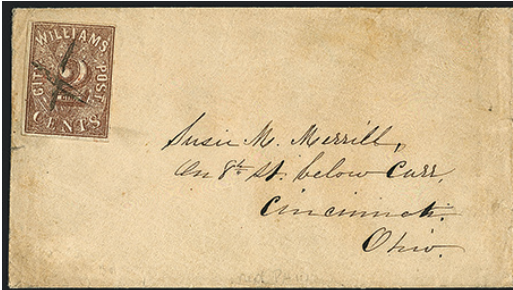 WILLIAMS
CITY POST
2
CENTS
Susie M. Merrill,
On 8th St. below Carr.
Cincinnati.
Ohio.